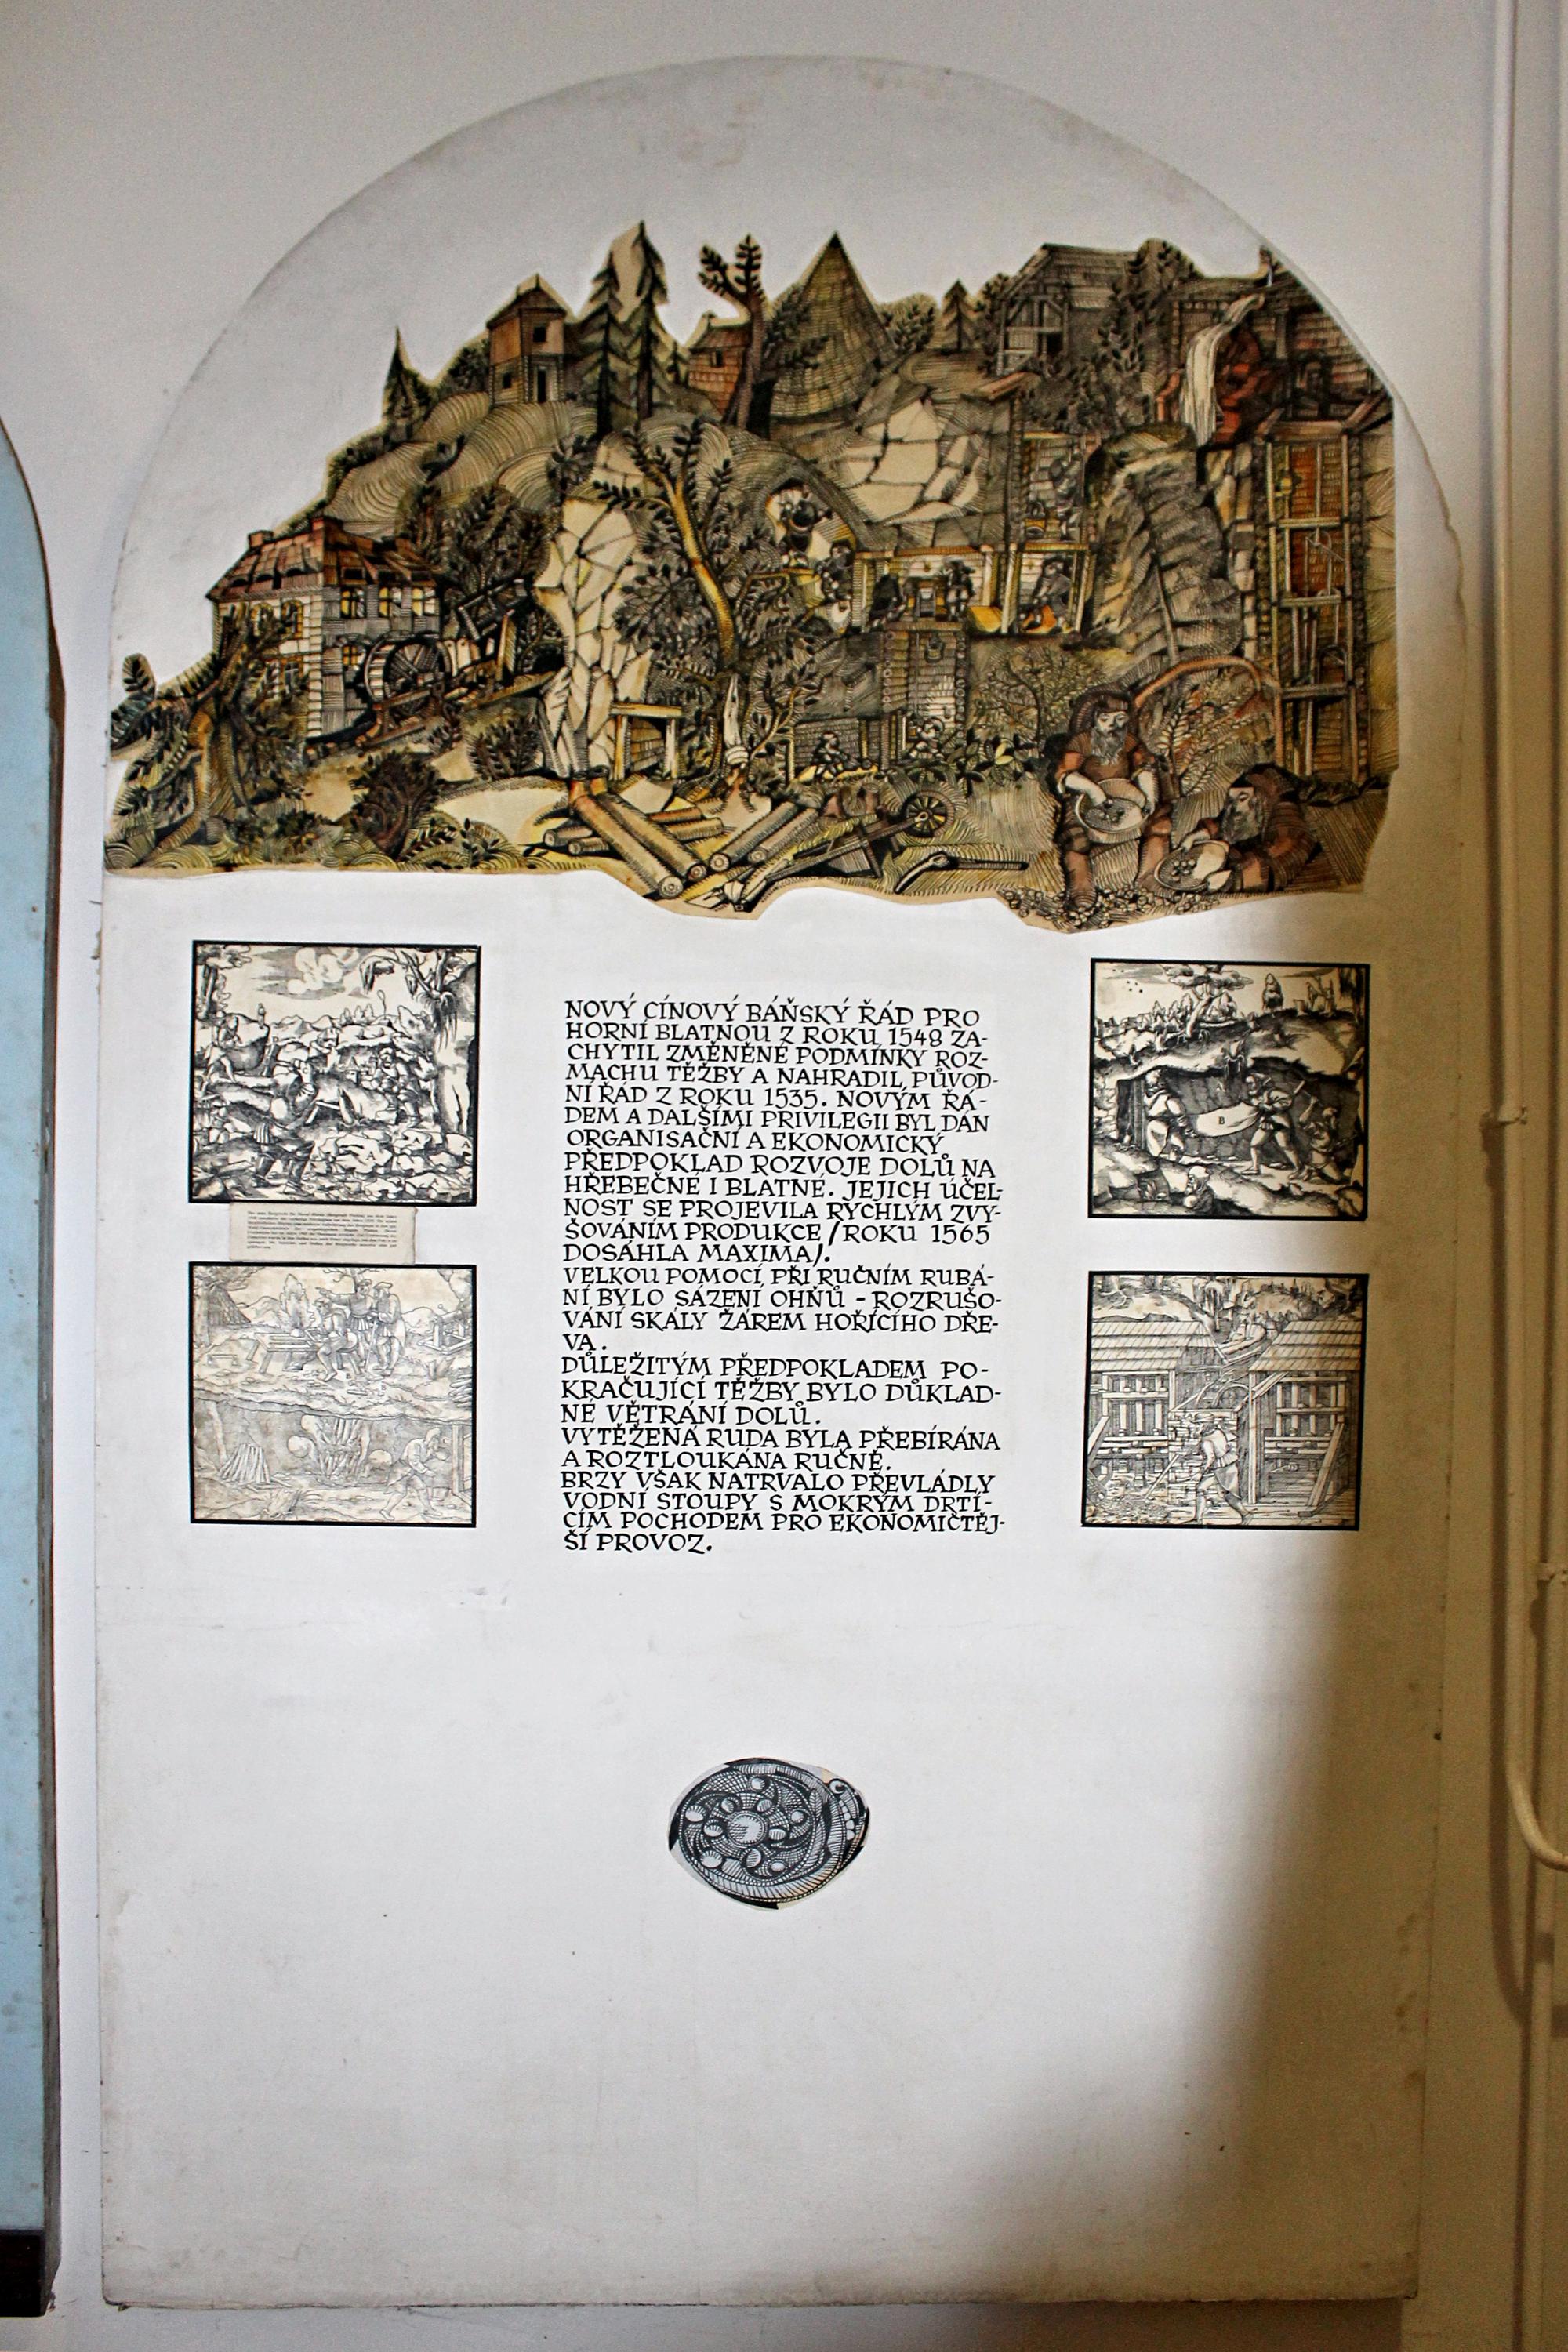 NOVÝ CÍNOVÝ BÁŇSKÝ ŘÁD PRO
HORNÍ BLATNOU Z ROKU 1548 ZA-
CHYTIL ZMĚNĚNÉ PODMÍNKY ROZ-
MACHU TĚŽBY A NAHRADIL PŮVOD-
NÍ ŘÁD Z ROKU 1535. NOVÝM ŘÁ-
DEM A DALŠÍMI PRIVILEGII BYL DÁN
ORGANISAČNÍ A EKONOMICKÝ
PŘEDPOKLAD ROZVOJE DOLŮ NA
HŘEBEČNÉ I BLATNÉ. JEJICH ÚČEL-
NOST SE PROJEVILA RYCHLÝM ZVY-
ŠOVÁNÍM PRODUKCE /ROKU 1565
DOSÁHLA MAXIMA/.
VELKOU POMOCÍ PŘI RUČNÍM RUBÁ-
NÍ BYLO SÁZENÍ OHŇŮ - ROZRUŠO-
VÁNÍ SKÁLY ŽÁREM HOŘÍCÍHO DŘE-
VA.
DŮLEŽITÝM PŘEDPOKLADEM PO-
KRAČUJÍCÍ TĚŽBY BYLO DŮKLAD-
NÉ VĚTRÁNÍ DOLŮ.
VYTĚŽENÁ RUDA BYLA PŘEBÍRÁNA
A ROZTLOUKÁNA RUČNĚ.
BRZY VŠAK NATRVALO PŘEVLÁDLY
VODNÍ STOUPY S MOKRÝM DRTÍ-
CÍM POCHODEM PRO EKONOMIČTĚJ-
ŠÍ PROVOZ.
B